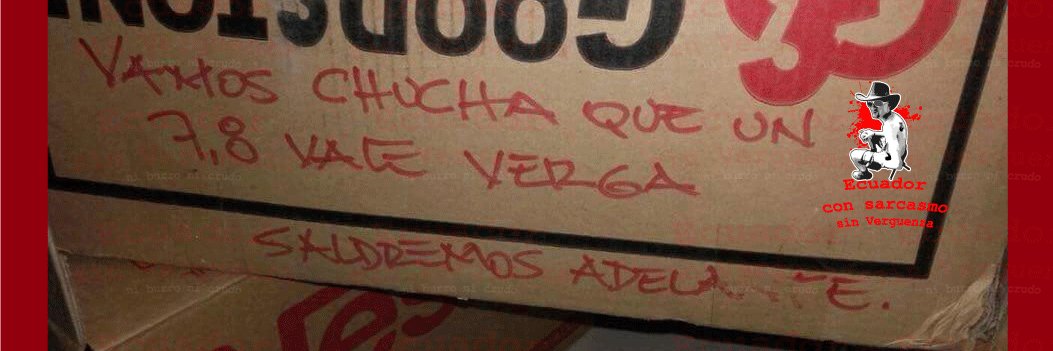 VAMOS CHUCHA QUE UN
7,8 VALE VERGA
SALDREMOS ADELANTE.
Ecuador
con sarcasmo
sin Verguenza
ni burro ni crudo